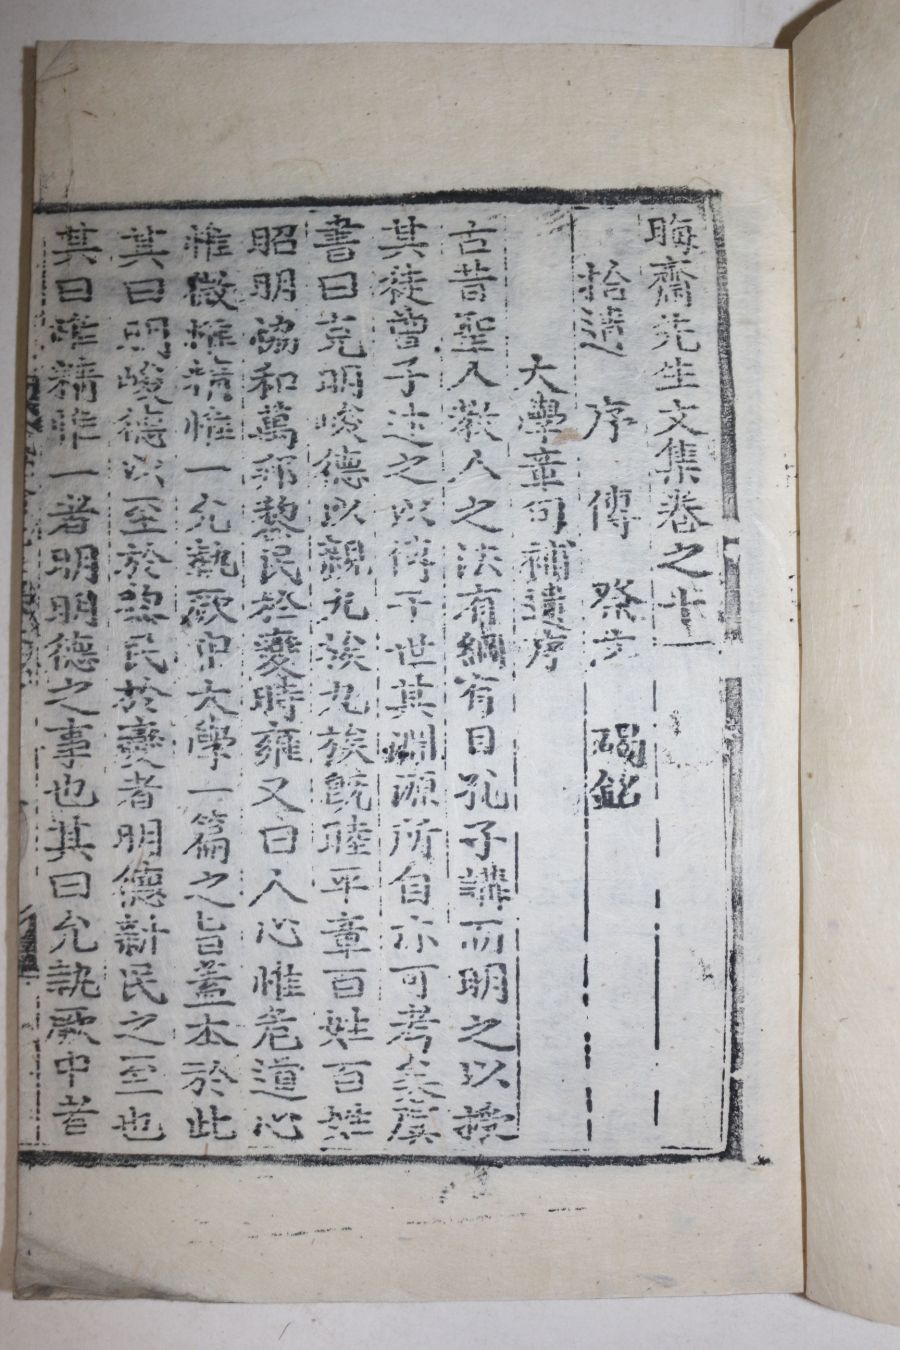 晦齋先生文集卷之十一
拾遺 序 傳 祭文 碣銘
大學章句補遺序
古昔聖人教人之法有綱有目孔子講而明之以授
其徒曾子述之以傳于世其淵源所自亦可考矣虞
書曰克明峻德以親九族九族旣睦平章百姓百姓
昭明協和萬邦黎民於變時雍又曰人心惟危道心
惟微惟精惟一允執厥中大學一篇之旨蓋本於此
其曰明峻德以至於黎民於變者明德新民之至也
其曰惟精惟一者明明德之事也其曰允執厥中者